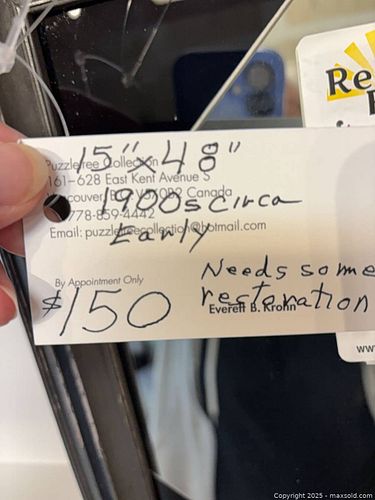 15" x 48"
Puzzletree Collection
161-628 East Kent Avenue S
1900s Circa
Canada
778-859-4442
Early
Email: puzzletreecollection@hotmail.com
By Appointment Only
Needs some
$150
restoration
Everett B. Krohn
Re
www
Copyright © 2025 - maxsold.com